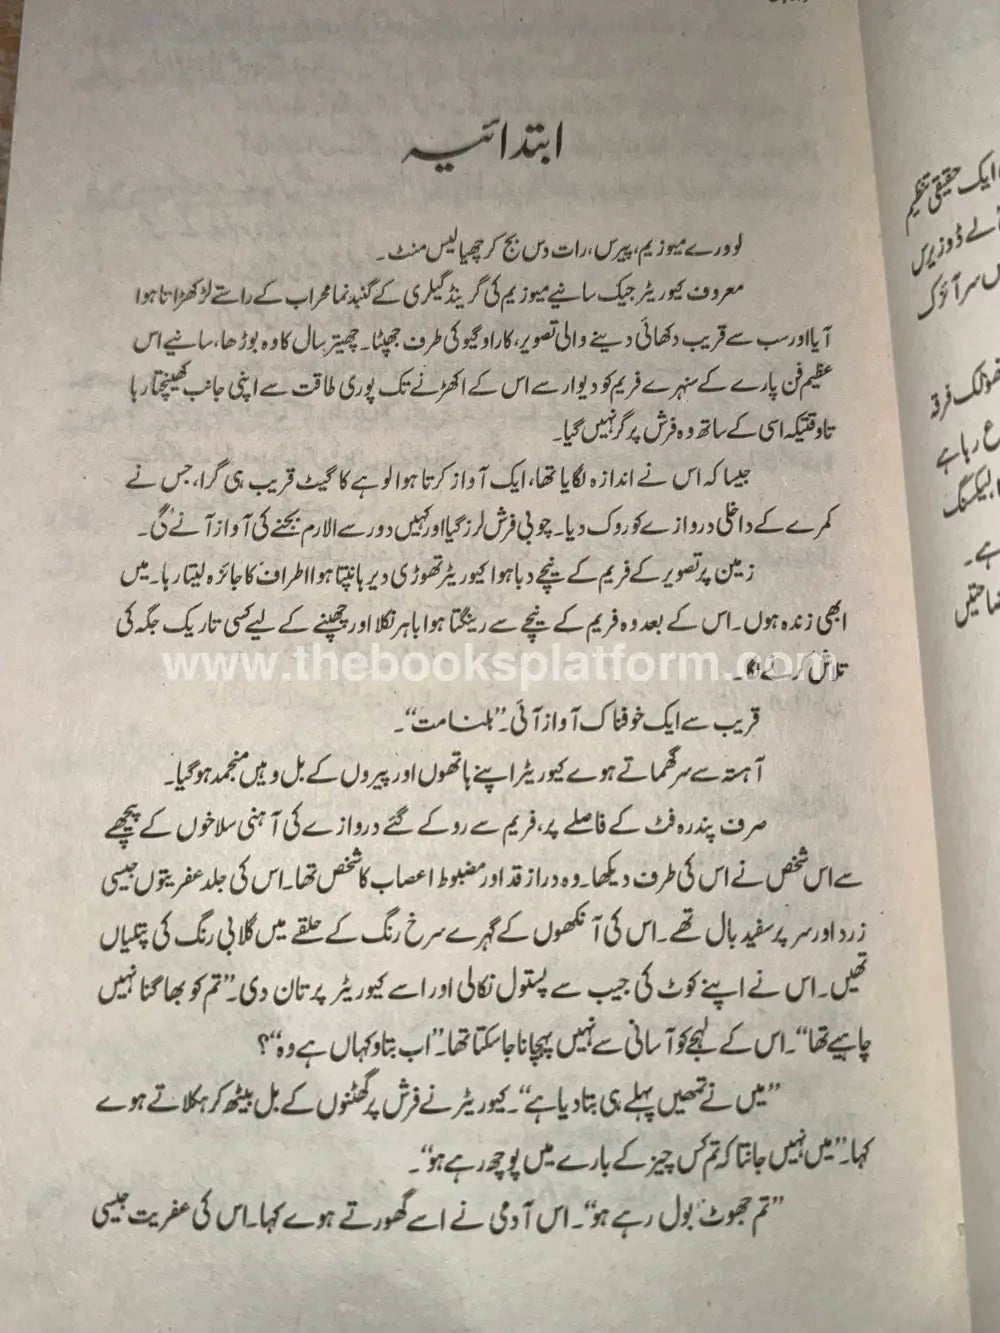 ابتدائیہ
لوورے میوزیم، پیرس، رات دس بج کر چھیالیس منٹ۔
معروف کیوریٹر جیک سانیے میوزیم کی گرینڈ گیلری کے گنبد نما محراب کے راستے لڑکھڑاتا ہوا
آیا اور سب سے قریب دکھائی دینے والی تصویر، کاراوگیو کی طرف جھپٹا۔ چھیتر سال کا وہ بوڑھا، سانیے اس
عظیم فن پارے کے سنہرے فریم کو دیوار سے اس کے اکھڑنے تک پوری طاقت سے اپنی جانب کھینچتا رہا
تاوقتیکہ اسی کے ساتھ وہ فرش پر گر نہیں گیا۔
جیسا کہ اس نے اندازہ لگایا تھا، ایک آواز کرتا ہوا لوہے کا گیٹ قریب ہی گرا، جس نے
کمرے کے داخلی دروازے کو روک دیا۔ چوبی فرش لرز گیا اور کہیں دور سے الارم بجنے کی آواز آنے گی۔
زمین پر تصویر کے فریم کے نیچے دبا ہوا کیوریٹر تھوڑی دیر ہانپتا ہوا اطراف کا جائزہ لیتا رہا۔ میں
ابھی زندہ ہوں۔ اس کے بعد وہ فریم کے نیچے سے رینگتا ہوا باہر نکلا اور چھپنے کے لیے کسی تاریک جگہ کی
تلاش کرنے لگا۔
www.thebooksplatform.com
قریب سے ایک خوفناک آواز آئی۔ ”ہلنا مت“۔
آہستہ سے سر گھماتے ہوے کیوریٹر اپنے ہاتھوں اور پیروں کے بل وہیں منجمد ہو گیا۔
صرف پندرہ فٹ کے فاصلے پر، فریم سے روکے گئے دروازے کی آہنی سلاخوں کے پیچھے
سے اس شخص نے اس کی طرف دیکھا۔ وہ دراز قد اور مضبوط اعصاب کا شخص تھا۔ اس کی جلد عفریتوں جیسی
زرد اور سر پر سفید بال تھے۔ اس کی آنکھوں کے گہرے سرخ رنگ کے حلقے میں گلابی رنگ کی پتلیاں
تھیں۔ اس نے اپنے کوٹ کی جیب سے پستول نکالی اور اسے کیوریٹر پر تان دی۔ ”تم کو بھاگنا نہیں
چاہیے تھا“۔ اس کے لہجے کو آسانی سے نہیں پہچانا جا سکتا تھا۔ ”اب بتاو کہاں ہے وہ“؟
”میں نے تمھیں پہلے ہی بتا دیا ہے“۔ کیوریٹر نے فرش پر گھٹنوں کے بل بیٹھ کر ہکلاتے ہوے
کہا۔ ”میں نہیں جانتا کہ تم کس چیز کے بارے میں پوچھ رہے ہو“۔
”تم جھوٹ بول رہے ہو“۔ اس آدمی نے اسے گھورتے ہوے کہا۔ اس کی عفریت جیسی
ایک حقیقی تنظیم
ڈوزیرس
سر آئزک
فرقہ
رہا ہے
ہے۔